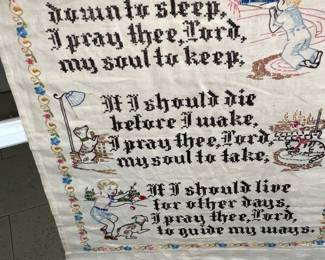 down to sleep,
I pray thee, Lord,
my soul to keep;
If I should die
before I wake,
I pray thee, Lord,
my soul to take,
If I should live
for other days,
I pray thee, Lord,
to guide my ways.